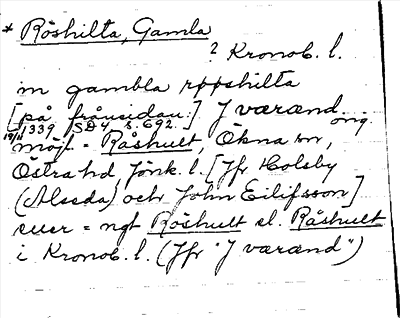 * Röshilta, Gamla
? Kronob. l.
in gambla røøshilta
[på frånsidan:] J værænd
19/11 1339 SD4 s. 692. orig.
möjl = Råshult, Ökna sn,
Östra hd Jönk. l. [Jfr Holsby
(Alseda) och John Eilifsson]
eller = ngt Röshult el. Råshult
i Kronob. l. (Jfr "J værænd")